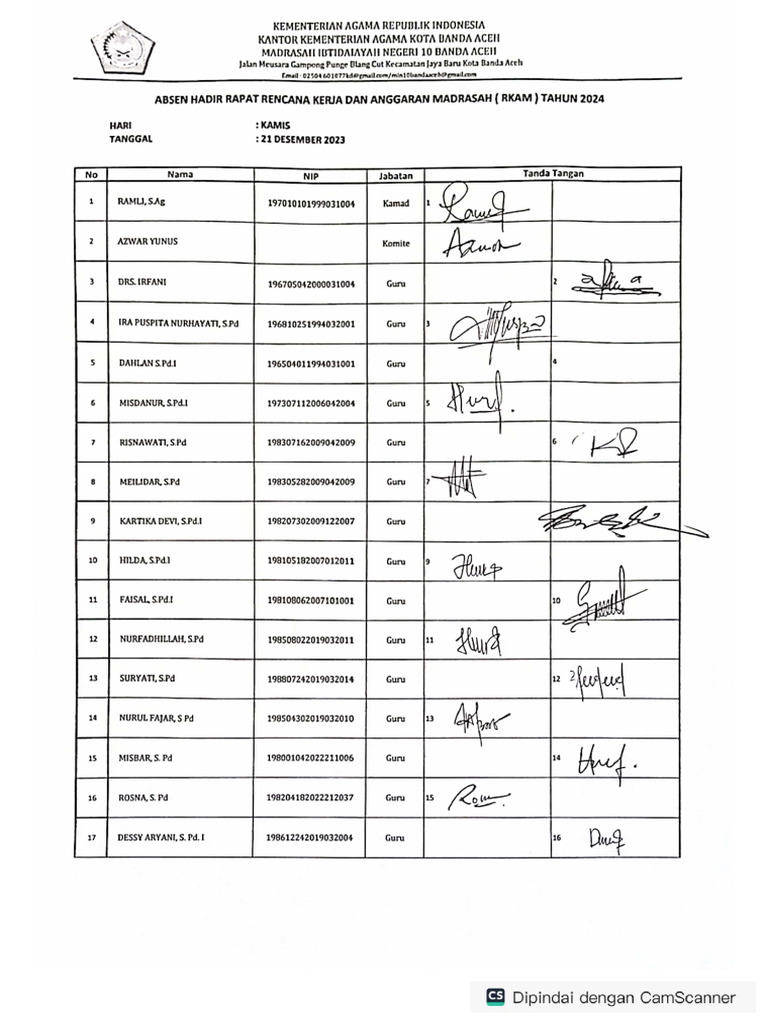 KEMENTERIAN AGAMA REPUBLIK INDONESIA
KANTOR KEMENTERIAN AGAMA KOTA BANDA ACEH
MADRASAH IBTIDAIAYAH NEGERI 10 BANDA ACEH
Jalan Meusara Gampong Punge Blang Cut Kecamatan Jaya Baru Kota Banda Aceh
ABSEN HADIR RAPAT RENCANA KERJA DAN ANGGARAN MADRASAH ( RKAM ) TAHUN 2024
HARI : KAMIS
TANGGAL : 21 DESEMBER 2023
No Nama NIP Jabatan Tanda Tangan
1 RAMLI, S.Ag 197010101999031004 Kamad 1
2 AZWAR YUNUS Komite
3 DRS. IRFANI 196705042000031004 Guru 2
4 IRA PUSPITA NURHAYATI, S.Pd 196810251994032001 Guru 3
5 DAHLAN S.Pd.I 196504011994031001 Guru 4
6 MISDANUR, S.Pd.I 197307112006042004 Guru 5
7 RISNAWATI, S.Pd 198307162009042009 Guru 6
8 MEILIDAR, S.Pd 198305282009042009 Guru 7
9 KARTIKA DEVI, S.Pd.I 198207302009122007 Guru
10 HILDA, S.Pd.I 198105182007012011 Guru 9
11 FAISAL, S.Pd.I 198108062007101001 Guru 10
12 NURFADHILLAH, S.Pd 198508022019032011 Guru 11
13 SURYATI, S.Pd 198807242019032014 Guru 12
14 NURUL FAJAR, S Pd 198504302019032010 Guru 13
15 MISBAR, S. Pd 198001042022211006 Guru 14
16 ROSNA, S. Pd 198204182022212037 Guru 15
17 DESSY ARYANI, S. Pd. I 198612242019032004 Guru 16
CS Dipindai dengan CamScanner